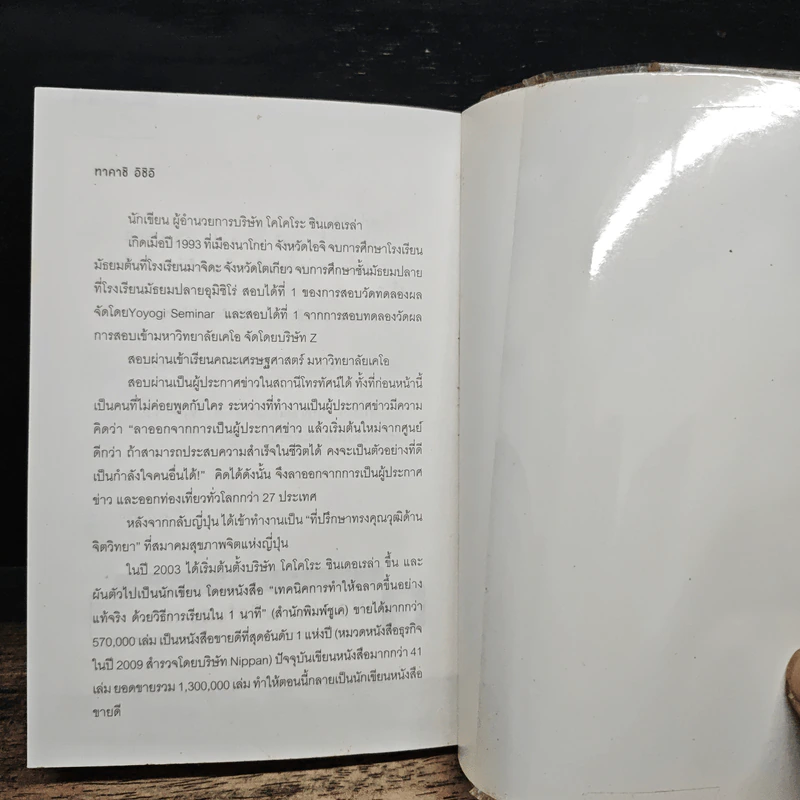 ทาคาชิ อิชิอิ
นักเขียน ผู้อำนวยการบริษัท โคโคโระ ซินเดอเรล่า
เกิดเมื่อปี 1993 ที่เมืองนาโกย่า จังหวัดไอจิ จบการศึกษาโรงเรียน
มัธยมต้นที่โรงเรียนมาจิดะ จังหวัดโตเกียว จบการศึกษาชั้นมัธยมปลาย
ที่โรงเรียนมัธยมปลายอุมิชิโร่ สอบได้ที่ 1 ของการสอบวัดทดลองผล
จัดโดยYoyogi Seminar และสอบได้ที่ 1 จากการสอบทดลองวัดผล
การสอบเข้ามหาวิทยาลัยเคโอ จัดโดยบริษัท Z
สอบผ่านเข้าเรียนคณะเศรษฐศาสตร์ มหาวิทยาลัยเคโอ
สอบผ่านเป็นผู้ประกาศข่าวในสถานีโทรทัศน์ได้ ทั้งที่ก่อนหน้านี้
เป็นคนที่ไม่ค่อยพูดกับใคร ระหว่างที่ทำงานเป็นผู้ประกาศข่าวมีความ
คิดว่า "ลาออกจากการเป็นผู้ประกาศข่าว แล้วเริ่มต้นใหม่จากศูนย์
ดีกว่า ถ้าสามารถประสบความสำเร็จในชีวิตได้ คงจะเป็นตัวอย่างที่ดี
เป็นกำลังใจคนอื่นได้!" คิดได้ดังนั้น จึงลาออกจากการเป็นผู้ประกาศ
ข่าว และออกท่องเที่ยวทั่วโลกกว่า 27 ประเทศ
หลังจากกลับญี่ปุ่น ได้เข้าทำงานเป็น "ที่ปรึกษาทรงคุณวุฒิด้าน
จิตวิทยา" ที่สมาคมสุขภาพจิตแห่งญี่ปุ่น
ในปี 2003 ได้เริ่มต้นตั้งบริษัท โคโคโระ ซินเดอเรล่า ขึ้น และ
ผันตัวไปเป็นนักเขียน โดยหนังสือ "เทคนิคการทำให้ฉลาดขึ้นอย่าง
แท้จริง ด้วยวิธีการเรียนใน 1 นาที" (สำนักพิมพ์ซูเค) ขายได้มากกว่า
570,000 เล่ม เป็นหนังสือขายดีที่สุดอันดับ 1 แห่งปี (หมวดหนังสือธุรกิจ
ในปี 2009 สำรวจโดยบริษัท Nippan) ปัจจุบันเขียนหนังสือมากกว่า 41
เล่ม ยอดขายรวม 1,300,000 เล่ม ทำให้ตอนนี้กลายเป็นนักเขียนหนังสือ
ขายดี